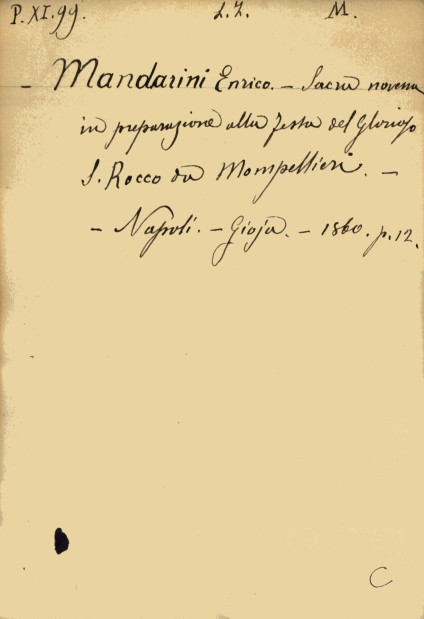 P. XI. 99. L. Z. M.
- Mandarini Enrico. - Sacra novena
in preparazione alla festa del Glorioso
S. Rocco da Mompellieri. -
- Napoli. - Gioja. - 1860. p. 12.
C